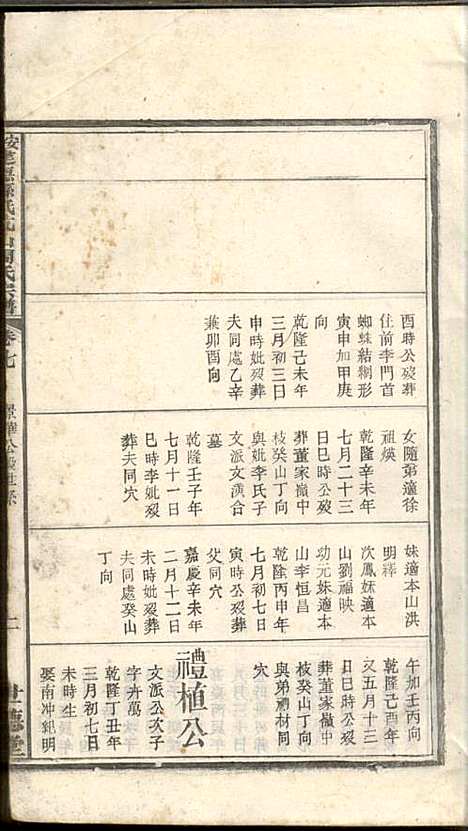 酉時公殁葬
住前李門首
蜘蛛結網形
寅申加甲庚
向
乾隆己未年
三月初三日
申時妣殁葬
夫同處乙辛
兼卯酉向
女隨弟適徐
祖煐
乾隆辛未年
七月二十三
日巳時公殁
葬董家嶺中
枝癸山丁向
與妣李氏子
文派文漢合
墓
乾隆壬子年
七月十一日
巳時李妣殁
葬夫同穴
妹適本山洪
明釋
次鳳妹適本
山劉福映
幼元妹適本
山李恒昌
乾隆丙申年
七月初七日
寅時公殁葬
父同穴
嘉慶辛未年
二月十二日
未時妣殁葬
夫同處癸山
丁向
午加壬丙向
乾隆己酉年
又五月十三
日巳時公殁
葬董家嶺中
枝癸山丁向
與弟禮材同
穴
禮植公
文派公次子
字卉萬
乾隆丁丑年
三月初七日
未時生
娶南冲紀明
氏宗譜
卷七
二
世德堂